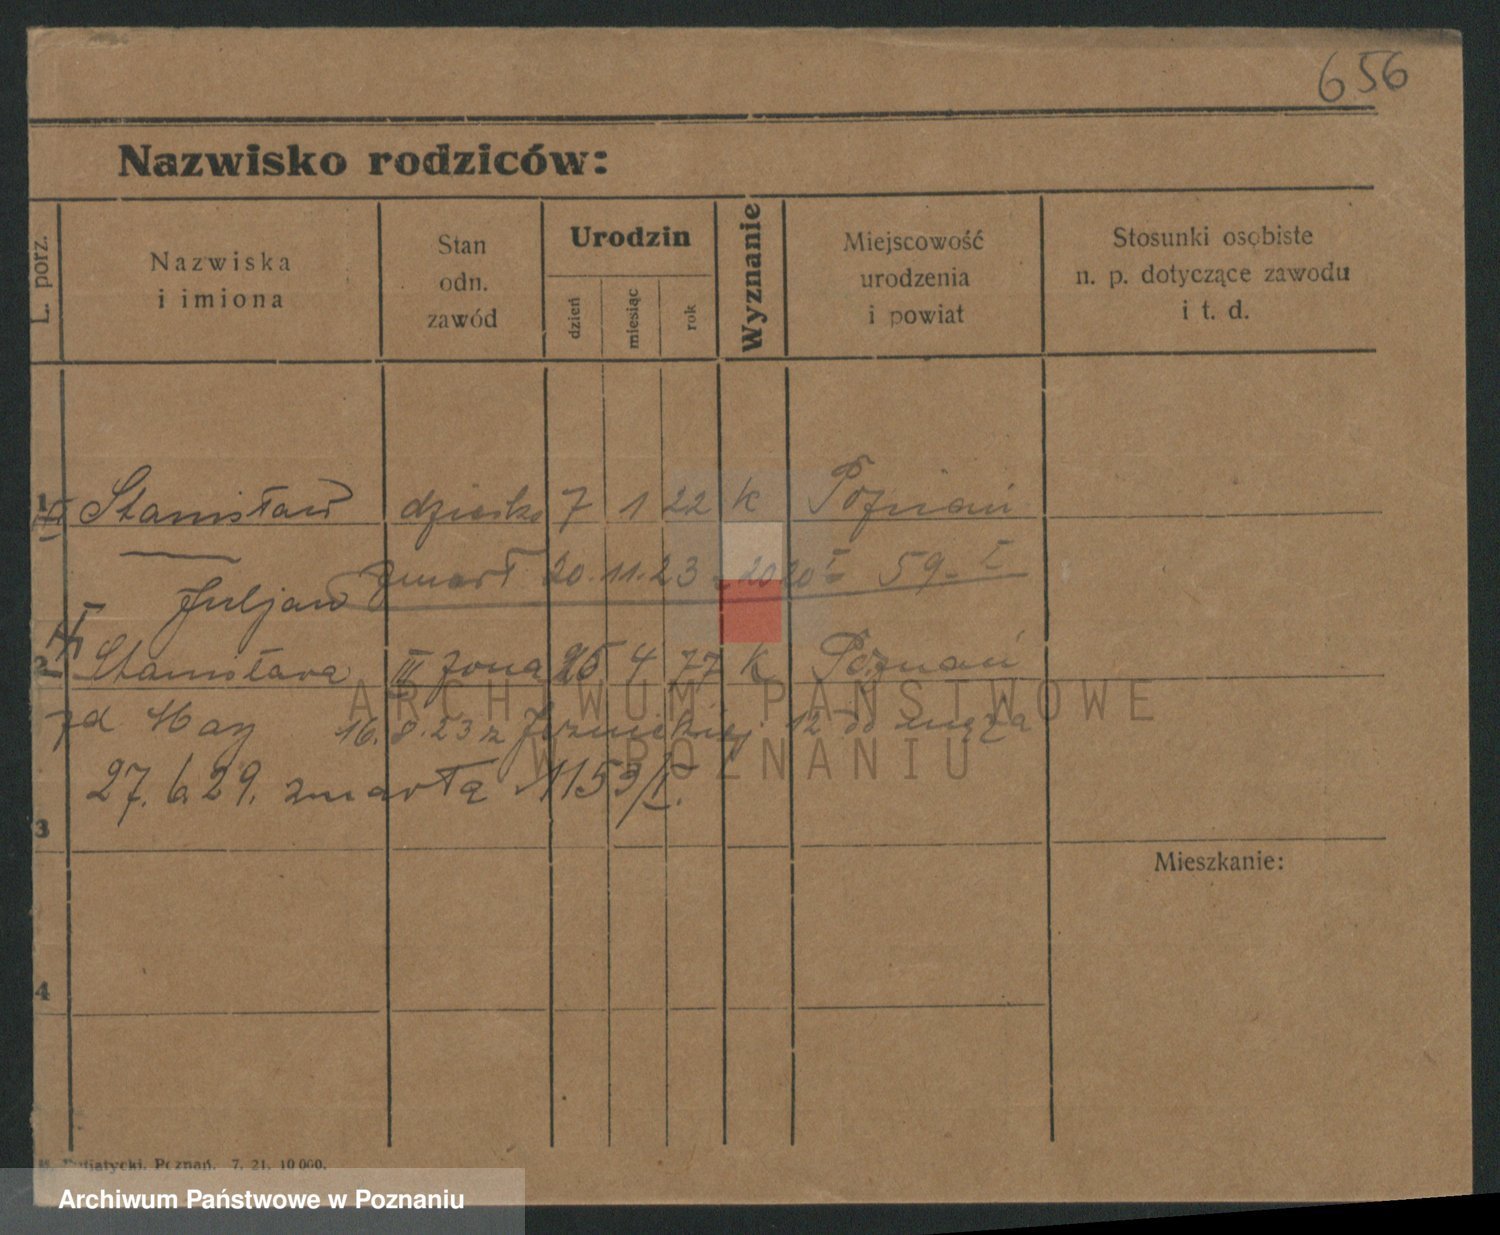 656
Nazwisko rodziców:
L. porz.
Nazwiska
i imiona
Stan
odn.
zawód
Urodzin
dzień
miesiąc
rok
Wyznanie
Miejscowość
urodzenia
i powiat
Stosunki osobiste
n. p. dotyczące zawodu
i t. d.
1 Stanisław dziecko 7 1 22 k Poznań
zmarł 20.11.23 59 I
Juljan
2 Stanisława III żona 4 77 k Poznań
16.8.23 z 12 do męża
27.6.29. zmarła 1153/I.
3
Mieszkanie:
4
Poznań. 7. 21. 10 000.
ARCHIWUM PAŃSTWOWE
W POZNANIU
Archiwum Państwowe w Poznaniu